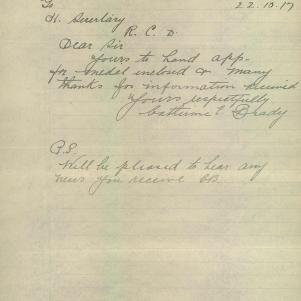 To 22.10.17
H. Secretary
R. C. D.
Dear Sir
Yours to hand app-
for medal enclosed & many
thanks for information received
Yours respectfully
Catherine E Brady
P.S.
Will be pleased to hear any
news you receive CB